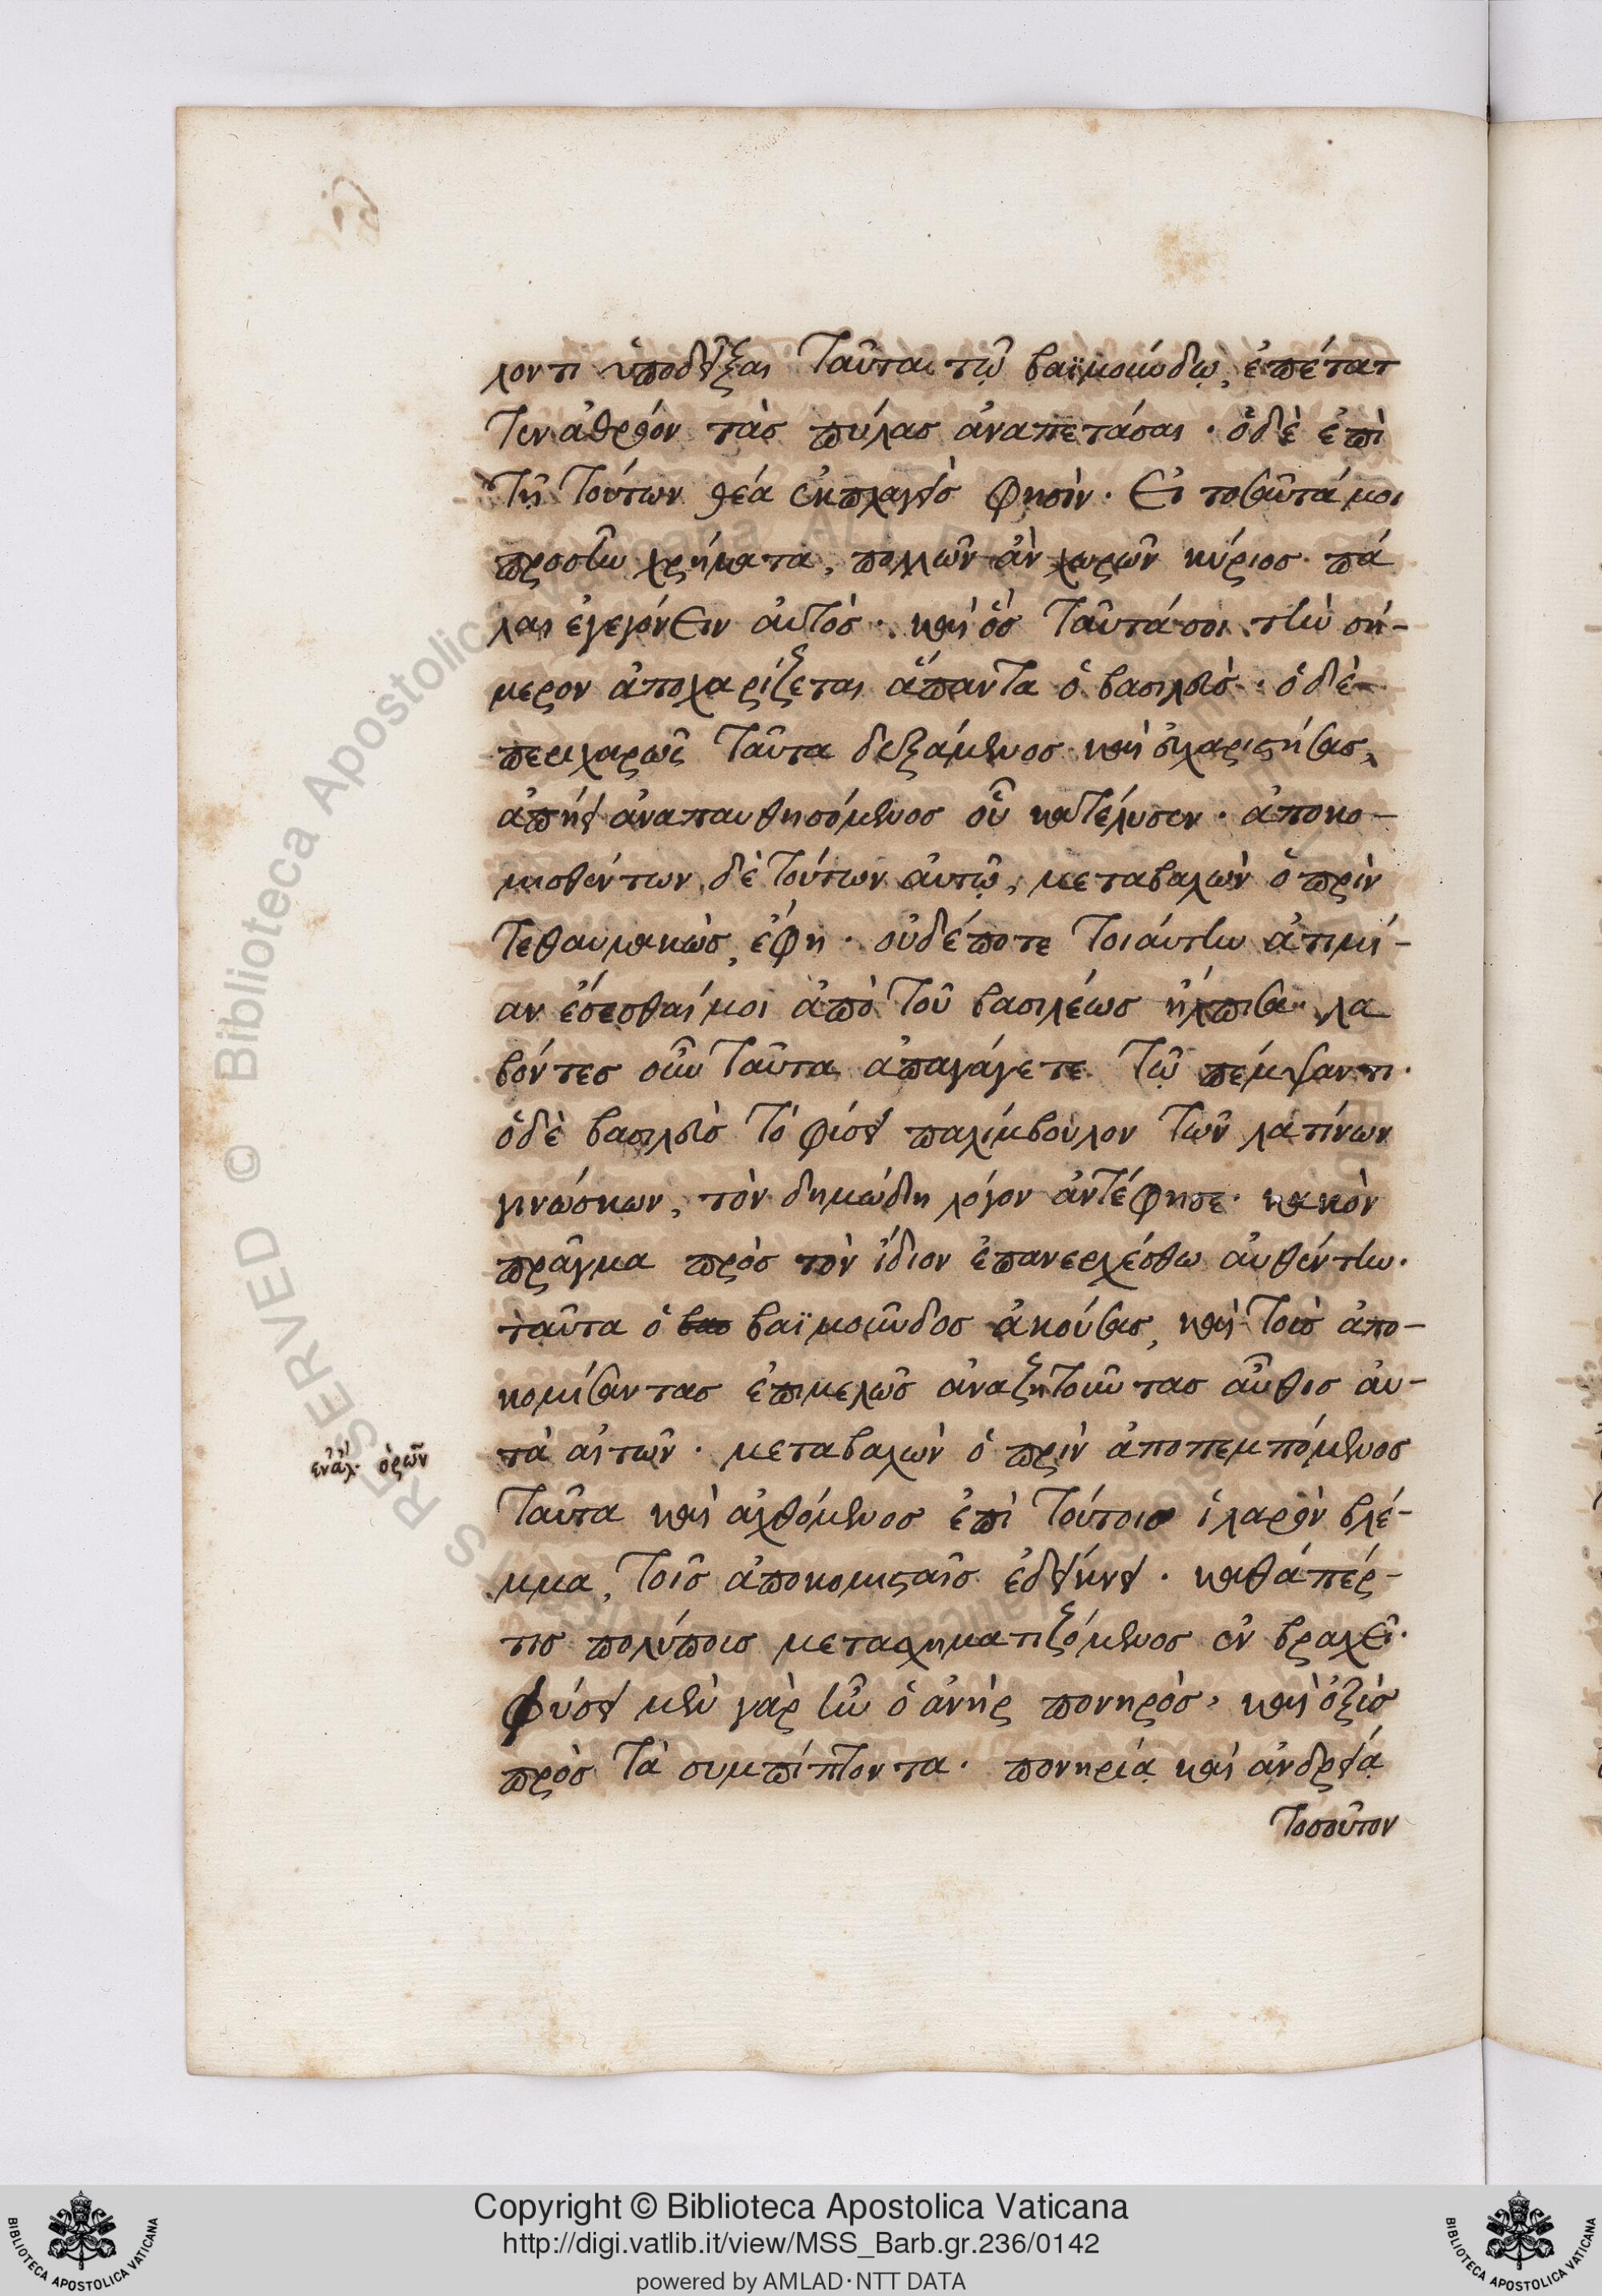 λοντι ὑποδεῖξαι ταῦτα τῷ βαϊμούνδῳ, ἐπέτατ
τεν ἀθρόον τὰς πύλας ἀναπετάσαι · ὁ δὲ ἐπὶ
τῇ τούτων θέα ἐκπλαγεὶς φησὶν · Εἰ τοσαῦτά μοι
προσῆν χρήματα, πολλῶν ἂν χωρῶν κύριος πά
λαι ἐγεγόνειν αὐτός · καὶ ὃς ταῦτά σοι τὴν σή-
μερον ἀποχαρίζεται ἅπαντα ὁ βασιλεύς · ὁ δὲ
περιχαρῶς ταῦτα δεξάμενος καὶ εὐχαριστήσας,
ἀπῄει ἀναπαυθησόμενος οὗ κατέλυσεν · ἀποκο-
μισθέντων δὲ τούτων αὐτῷ, μεταβαλὼν ὁ πρὶν
τεθαυμακὼς, ἔφη · οὐδέποτε τοιαύτην ἀτιμί-
αν ἔσεσθαί μοι ἀπὸ τοῦ βασιλέως ἤλπισα · λα
βόντες οὖν ταῦτα ἀπαγάγετε τῷ πέμψαντι ·
ὁ δὲ βασιλεὺς τὸ φύσει παλίμβουλον τῶν λατίνων
γινώσκων, τὸν δημώδη λόγον ἀντέφησε · κακὸν
πρᾶγμα πρὸς τὸν ἴδιον ἐπανερχέσθω αὐθέντην ·
ταῦτα ὁ βασ βαϊμοῦνδος ἀκούσας, καὶ τοὺς ἀπο-
κομίσαντας ἐπιμελῶς ἀναζητοῦντας αὖθις αὐ-
ἐν ἄλ. ὁρῶν
τὰ αἰτῶν · μεταβαλὼν ὁ πρὶν ἀποπεμπόμενος
ταῦτα καὶ ἀχθόμενος ἐπὶ τούτοις ἱλαρὸν βλέ-
μμα, τοῖς ἀποκομισταῖς ἐδείκνει · καθάπέρ-
τις πολύπους μετασχηματιζόμενος ἐν βραχεῖ ·
Φύσει μὲν γὰρ ἦν ὁ ἀνὴρ πονηρὸς, καὶ ὀξὺς
πρὸς τὰ συμπίπτοντα · πονηρίᾳ καὶ ἀνδρείᾳ
τοσοῦτον
RESERVED © Biblioteca Apostolica
Copyright © Biblioteca Apostolica Vaticana
http://digi.vatlib.it/view/MSS_Barb.gr.236/0142
powered by AMLAD·NTT DATA
BIBLIOTECA APOSTOLICA VATICANA
BIBLIOTECA APOSTOLICA VATICANA